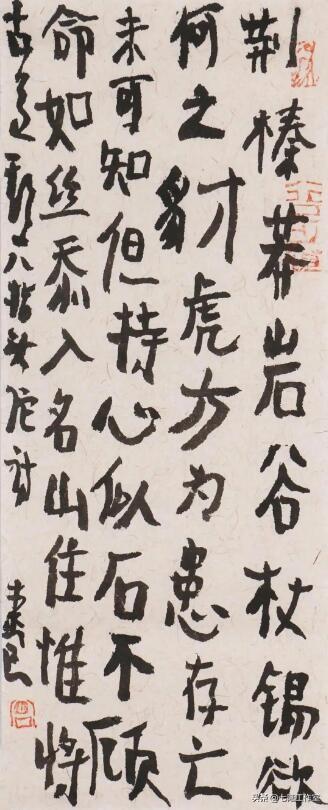 荆榛莽岩谷杖锡欲
何之豺虎方为患存亡
未可知但持心似石不顾
命如丝忝入名山住惟将
古道 八指头陀诗